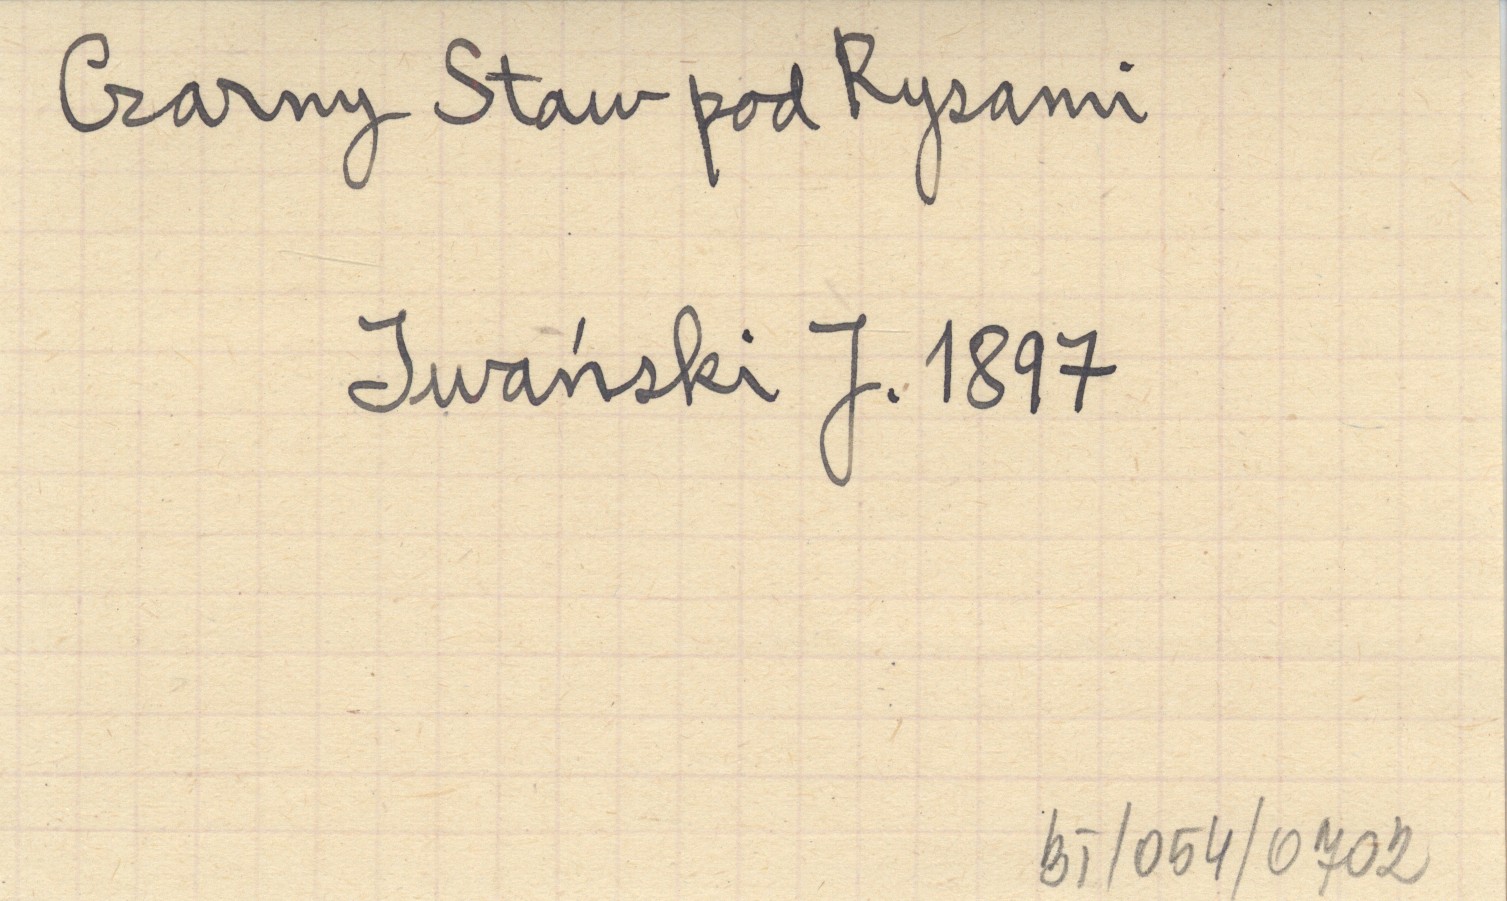 Czarny Staw pod Rysami
Iwański J. 1897
BI/054/0702